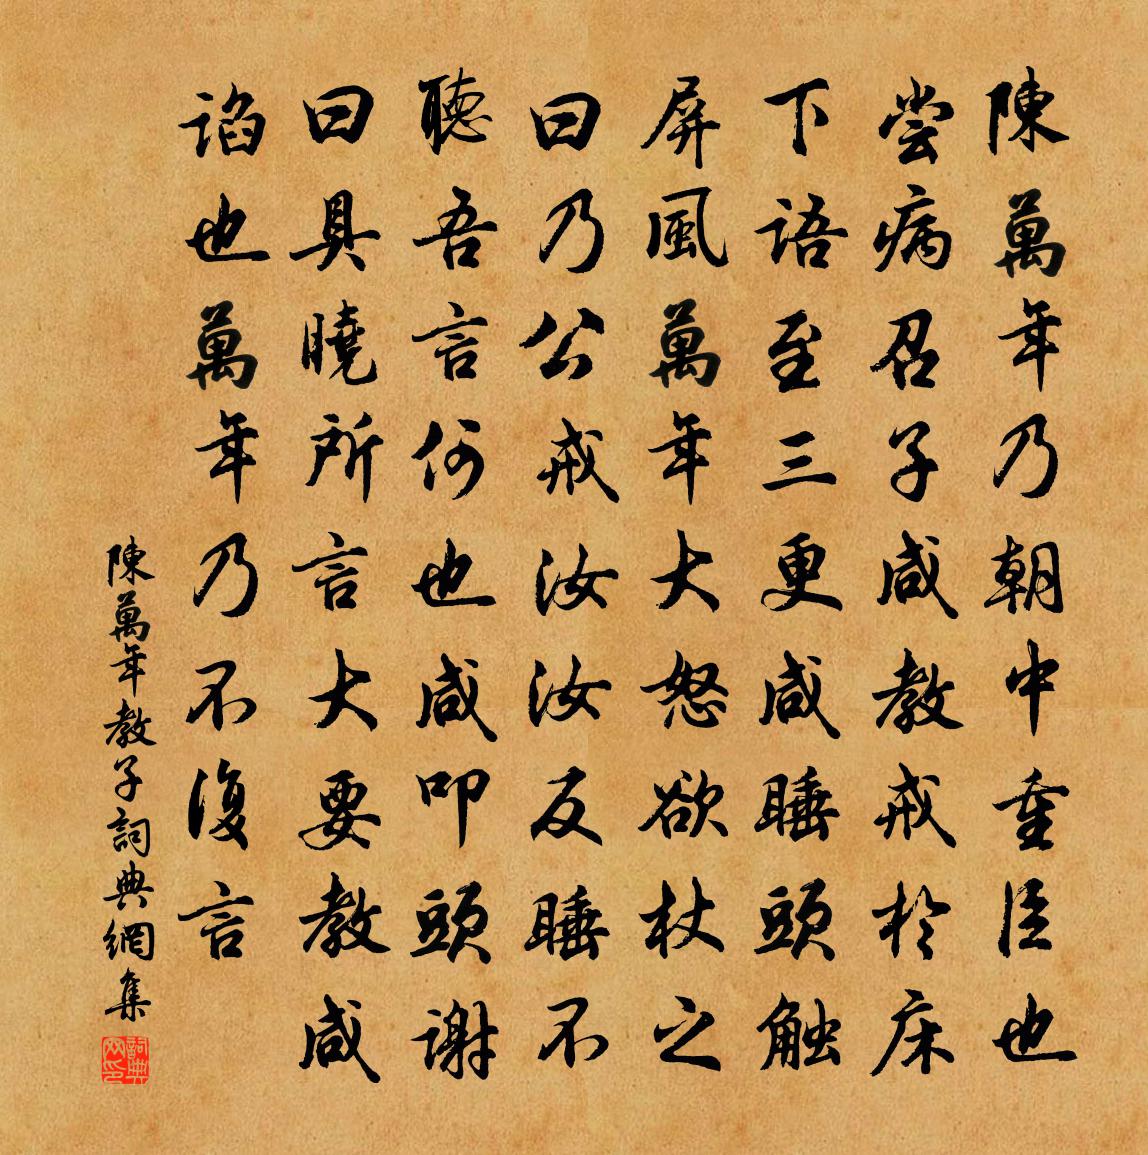 陳萬年乃朝中重臣也
尝病召子咸教戒於床
下語至三更咸睡頭触
屏風萬年大怒欲杖之
曰乃公戒汝汝反睡不
聴吾言何也咸叩頭谢
曰具曉所言大要教咸
谄也萬年乃不復言
陳萬年教子詞典網集
詞典网印